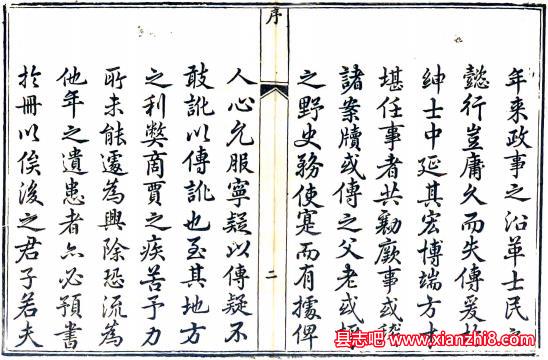 年来政事之沿革士民之
懿行豈庸久而失傳爰
紳士中延其宏博端方才
堪任事者共勷厥事或稽
諸案牘或傳之父老或
之野史務使寔而有據俾
序
二
人心允服寧疑以傳疑不
敢訛以傳訛也至其地方
之利弊商賈之疾苦予力
所未能遽為興除恐流為
他年之遺患者亦必預書
扵冊以俟後之君子若夫
县志吧 www.xianzhi8.com